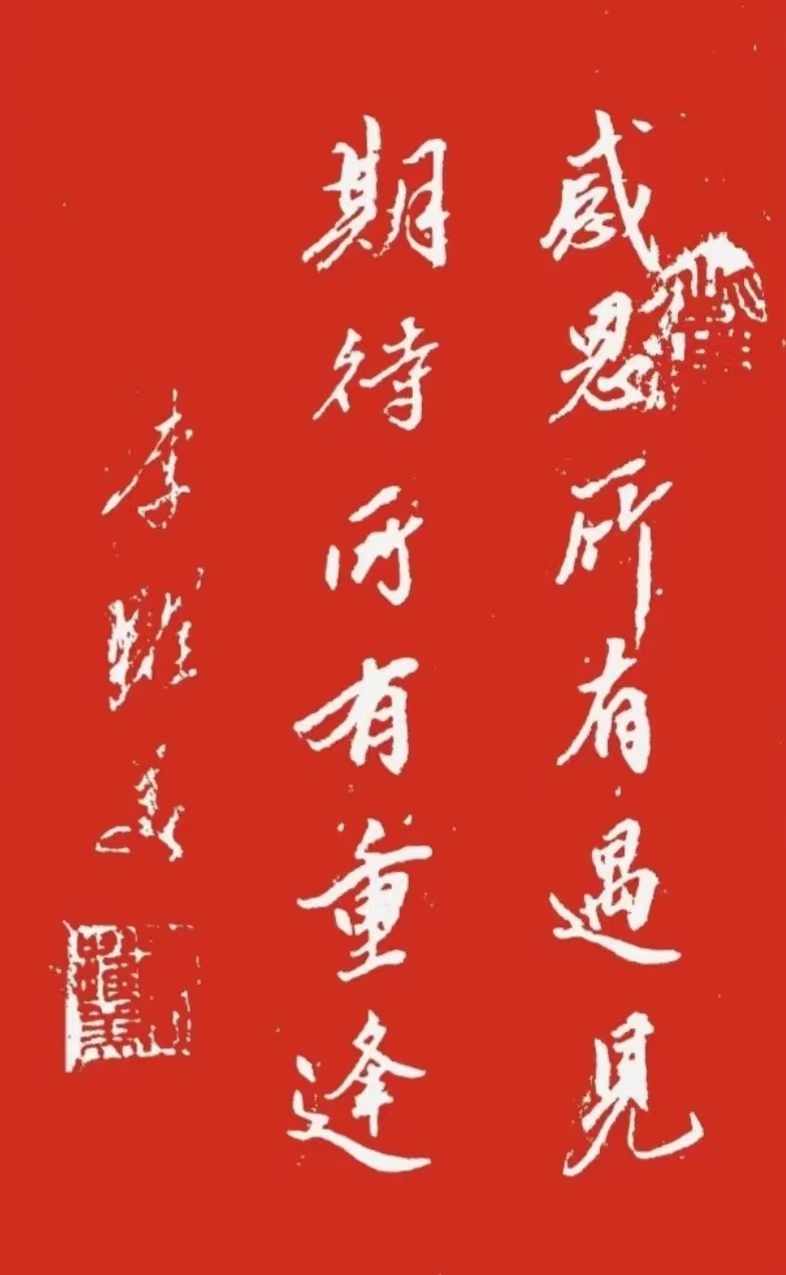 感恩所有遇見
期待所有重逢
李